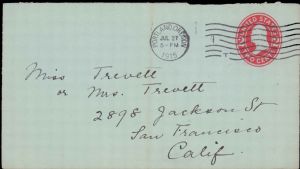 PORTLAND, OREGON
JUL 27
5-PM
1915
UNITED STATES
Miss Trevett
or Mrs. Trevett
2898 Jackson St
San Francisco
Calif.